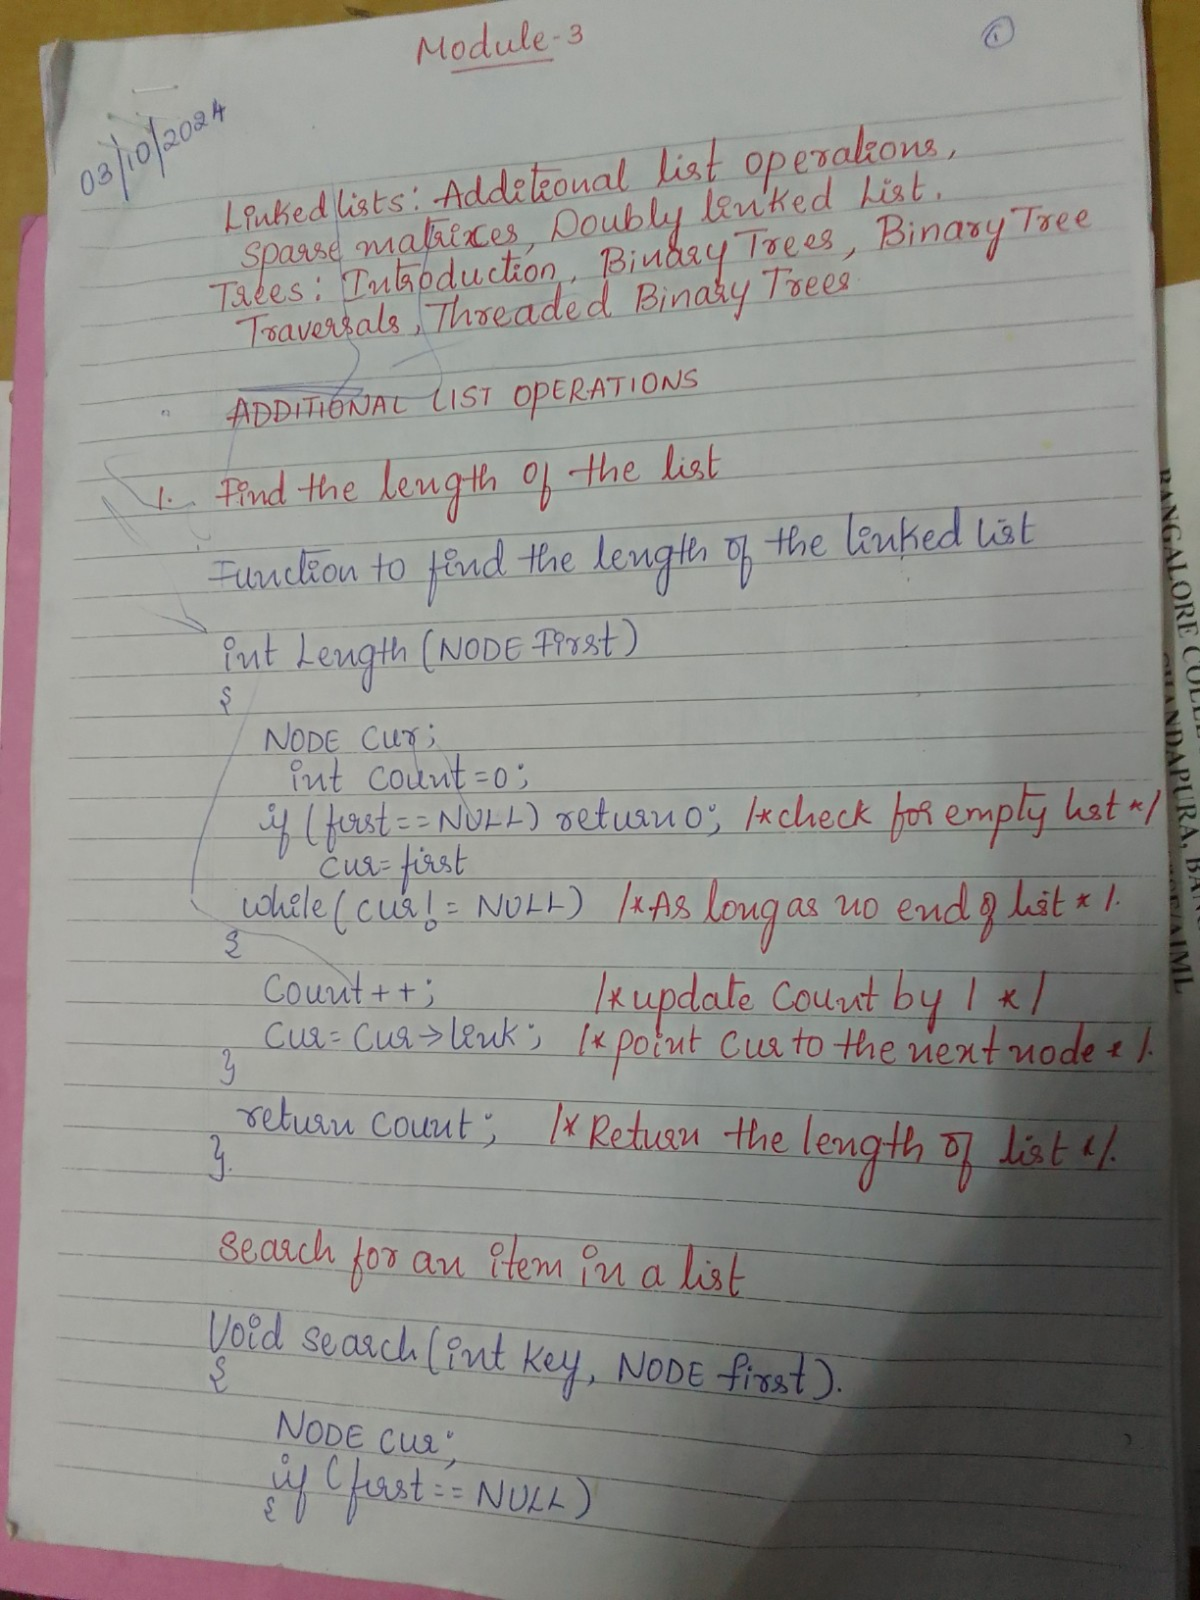 Module-3
1
03/10/2024
Linked lists: Additional list operations,
sparse matrixes, Doubly linked List.
Trees: Introduction, Binary Trees, Binary Tree
Traversals, Threaded Binary Trees
ADDITIONAL LIST OPERATIONS
1. Find the length of the list
Function to find the length of the linked list
int Length (NODE First)
{
NODE cur;
int count=0;
if (first==NULL) return 0; /*check for empty list */
cur=first
while(cur!=NULL) /*As long as no end of list */.
{
Count++; /*update Count by 1 */
Cur=Cur→link; /*point Cur to the next node */.
}
return count; /* Return the length of list */.
}.
Search for an item in a list
Void search(int key, NODE first).
{
NODE cur;
if (first==NULL)
{
BANGALORE COLLE
CHANDAPURA, BAN
/AIML